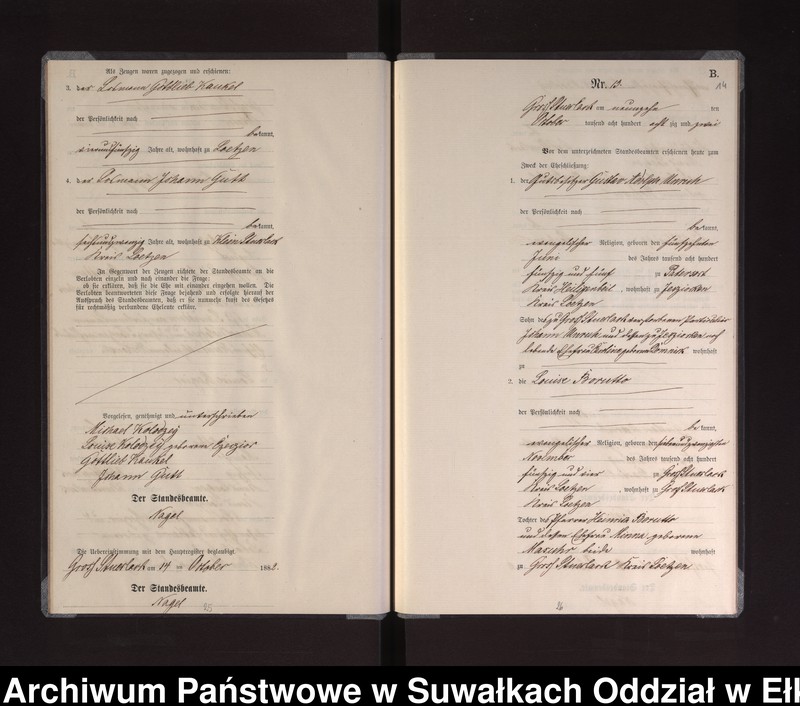 Als Zeugen waren zugezogen und erschienen:
3. der Losmann Gottlieb Kankel
der Persönlichkeit nach
bekannt,
Jahre alt, wohnhaft zu Loetzen
4. der Losmann Johann Guth
der Persönlichkeit nach
bekannt,
sechsundzwanzig Jahre alt, wohnhaft zu Klein Stuerlack
Kreis Loetzen
In Gegenwart der Zeugen richtete der Standesbeamte an die
Verlobten einzeln und nach einander die Frage:
ob sie erklären, daß sie die Ehe mit einander eingehen wollen. Die
Verlobten beantworteten diese Frage bejahend und erfolgte hierauf der
Ausspruch des Standesbeamten, daß er sie nunmehr kraft des Gesetzes
für rechtmäßig verbundene Eheleute erkläre.
Vorgelesen, genehmigt und unterschrieben
Michael Kolodzey
Louise Kolodzey geborene Czerzior
Gottlieb Kankel
Johann Guth
Der Standesbeamte.
Nagel
Die Uebereinstimmung mit dem Hauptregister beglaubigt.
Gross Stuerlack am 14 ten October 1882.
Der Standesbeamte.
Nagel
B.
Nr. 13.
14
Gross Stuerlack am neunzehn ten
October tausend acht hundert achtzig und zwei
Vor dem unterzeichneten Standesbeamten erschienen heute zum
Zweck der Eheschließung:
1. der Gutsbesitzer Gustav Adolph Unruh
der Persönlichkeit nach
bekannt,
evangelischer Religion, geboren den fünfzehnten
Juni des Jahres tausend acht hundert
fünfzig und fünf zu
Kreis Heiligenbeil, wohnhaft zu Jesziorken
Kreis Loetzen
Sohn des zu Gross Stuerlack verstorbenen
Johann Unruh und dessen zu Jesziorken noch
lebende Ehefrau geborene wohnhaft
zu
2. die Louise Borutto
der Persönlichkeit nach
bekannt,
evangelischer Religion, geboren den
November des Jahres tausend acht hundert
fünfzig und vier zu Gross Stuerlack
Kreis Loetzen, wohnhaft zu Gross Stuerlack
Kreis Loetzen
Tochter des Pfarrer Heinrich Borutto
und dessen Ehefrau geborene
beide wohnhaft
zu Gross Stuerlack Kreis Loetzen
Archiwum Państwowe w Suwałkach Oddział w Ełk